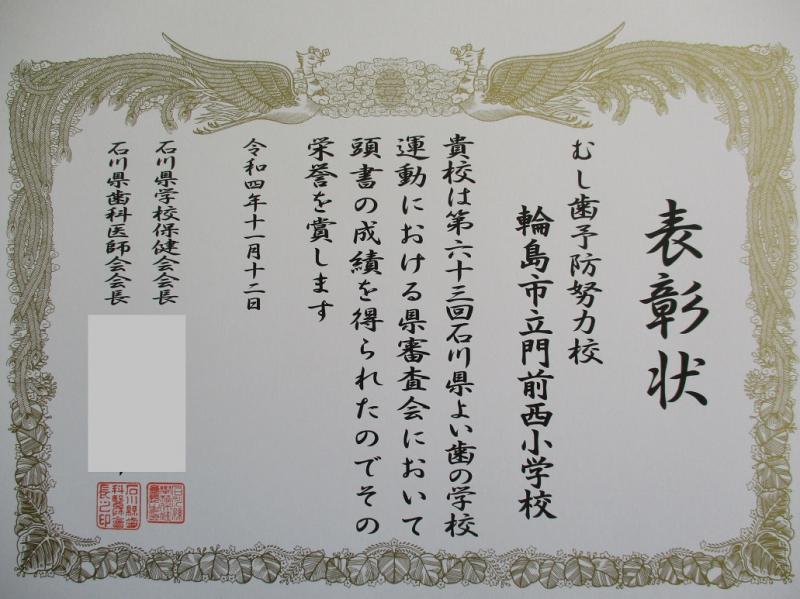 表彰状
むし歯予防努力校
輪島市立門前西小学校
貴校は第六十三回石川県よい歯の学校
運動における県審査会において
頭書の成績を得られたのでその
栄誉を賞します
令和四年十一月十二日
石川県学校保健会会長
石川県歯科医師会会長
石川県歯
科医師会
長之印